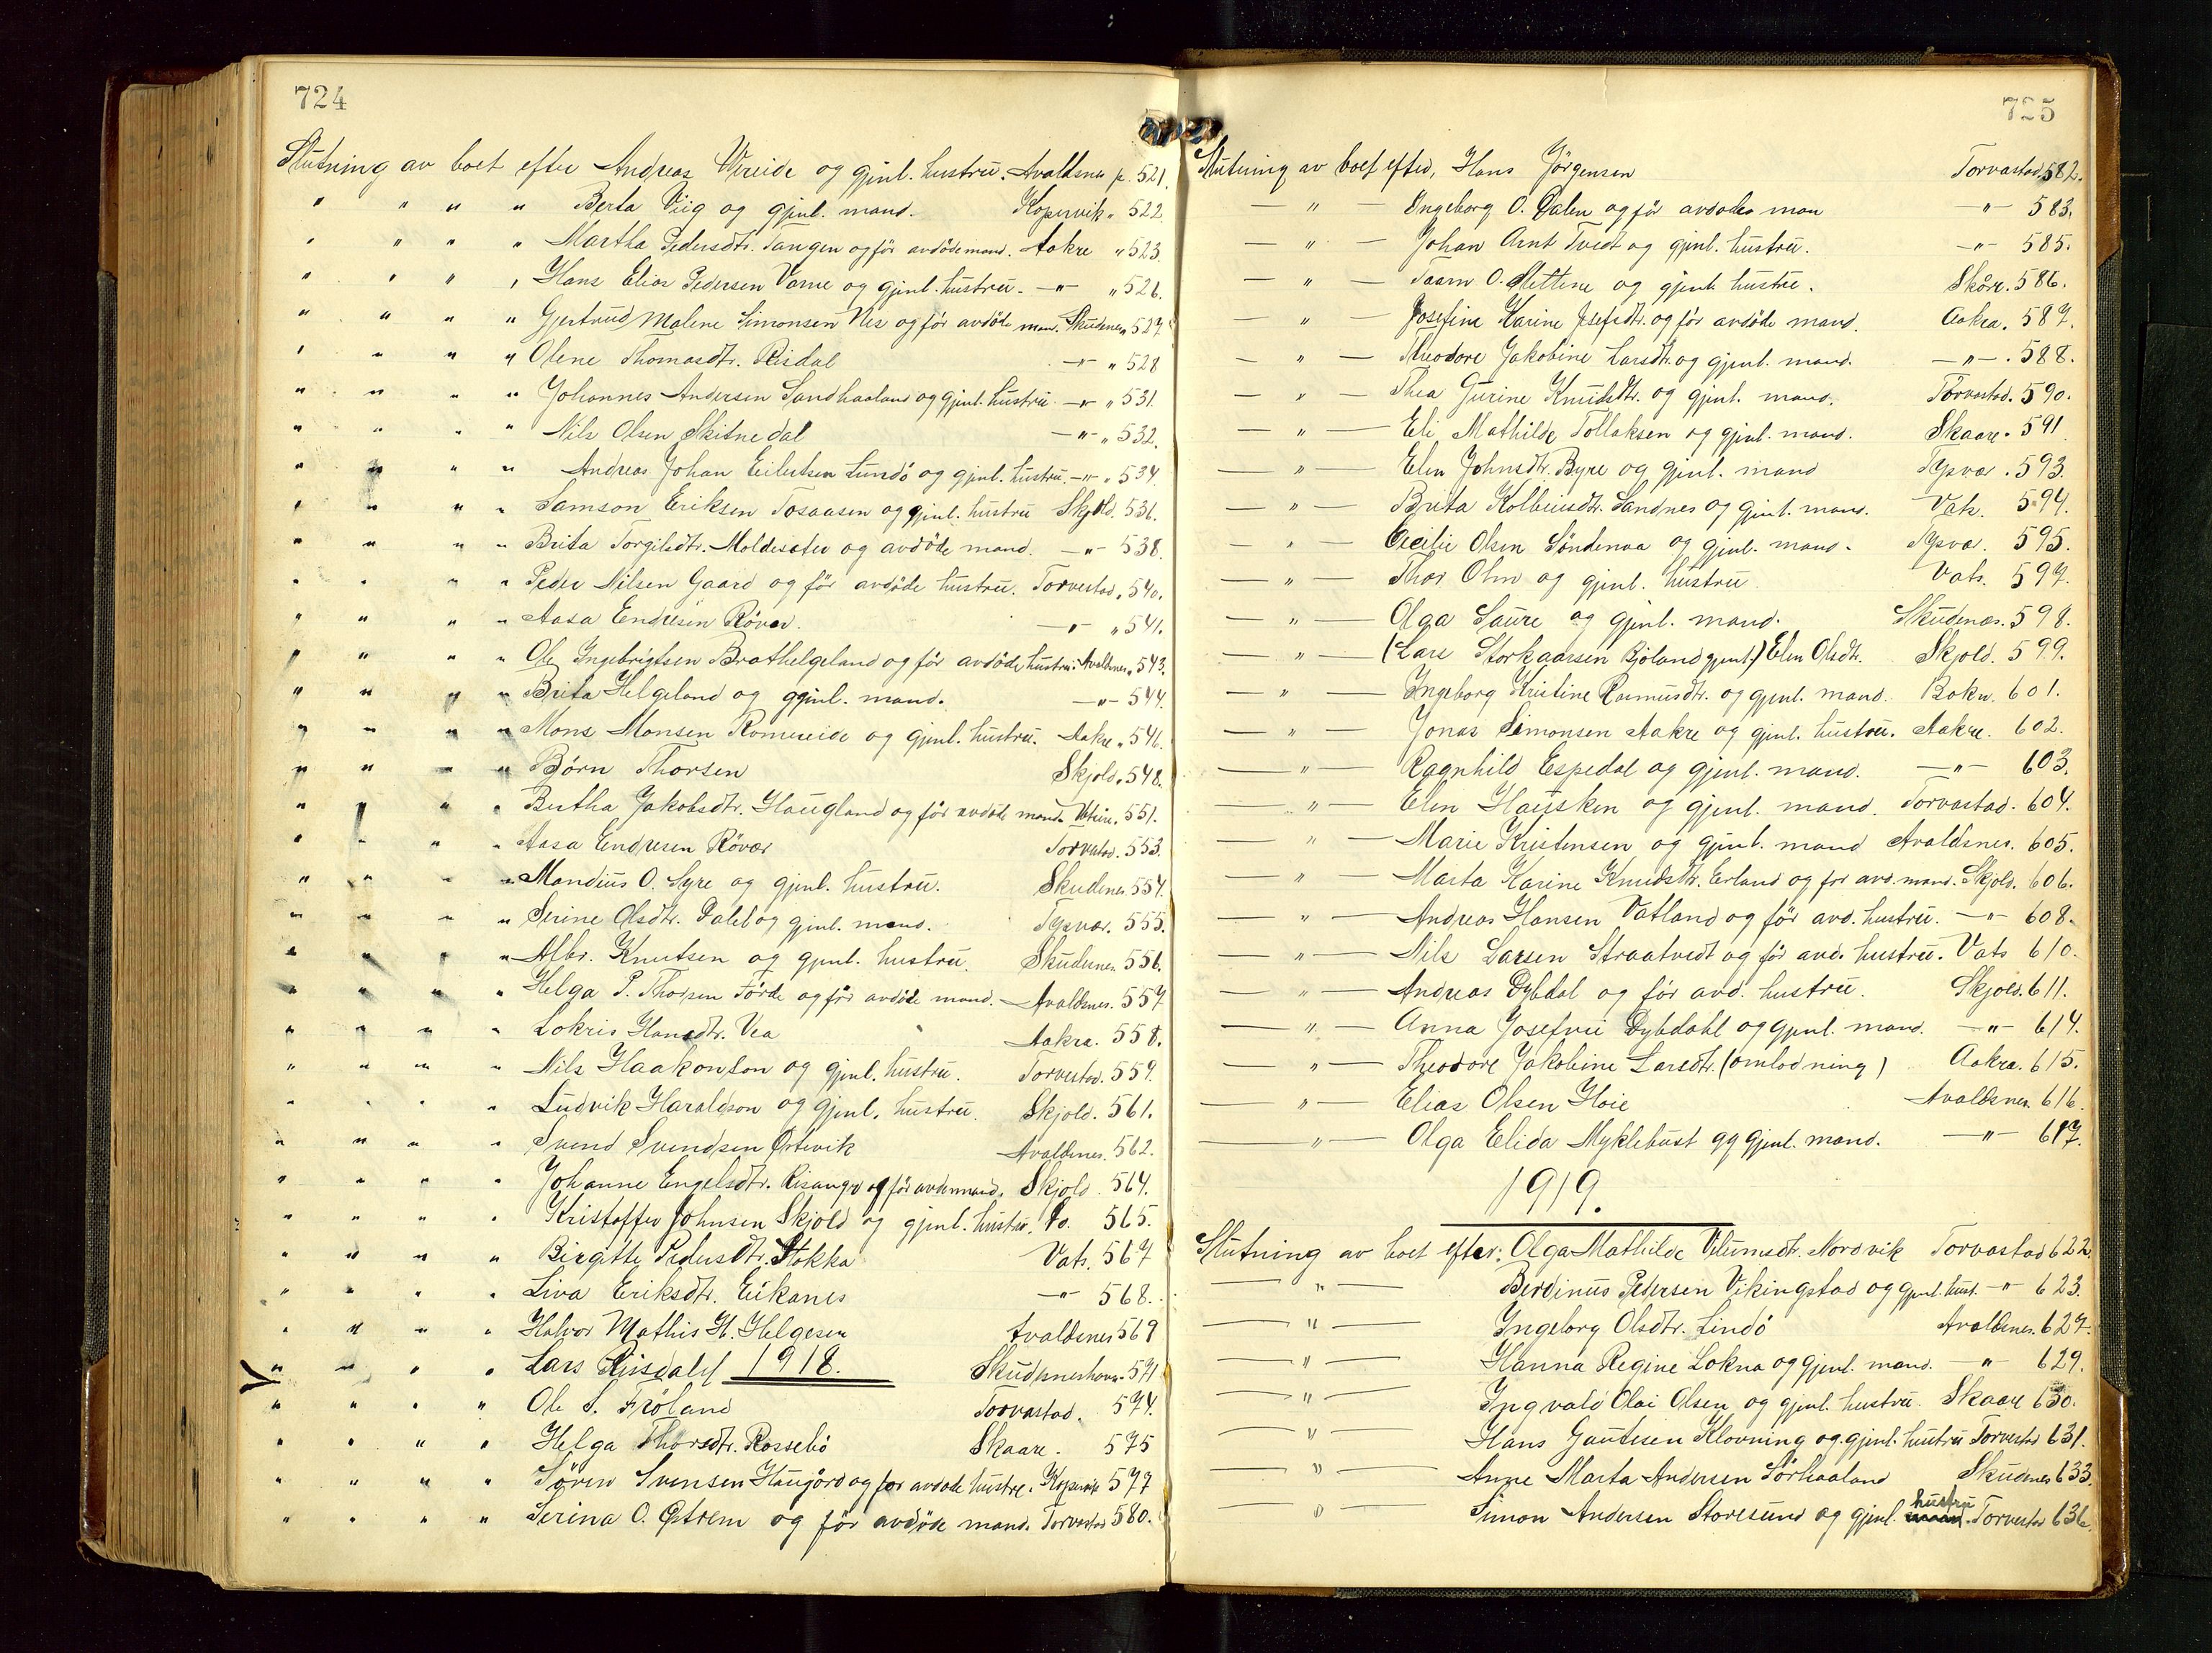 724
Slutning av boet efter Andreas Vereide og gjenl. hustru. Avaldsnes p. 521.
" " " " Berta Viig og gjenl. mand. Kopervik " 522.
" " " " Martha Pedersdtr. Tangen og før avdöde mand. Aakre " 523.
" " " " Hans Elias Pedersen Varne og gjenl. hustru. —"— " 526.
" " " " Gjertrud Malene Simonsen Nes og før avdöde man. Skudenes " 527
" " " " Olene Thomasdtr. Risdal —"— " 528
" " " " Johannes Andersen Sandhaaland og gjenl. hustru. —"— " 531.
" " " " Nils Olsen Skitnedal —"— " 532.
" " " " Andreas Johan Eilertsen Lundö og gjenl. hustru. —"— " 534.
" " " " Samson Eriksen Tosaasen og gjenl. hustru Skjold. 536.
" " " " Brita Torgilsdtr. Moldesæter og avdöde mand. —"— 538.
" " " " Peder Nilsen Gaard og før avdöde hustru. Torvestad " 540.
" " " " Aasa Endresen Röver. —"— " 541.
" " " " Ole Ingebrigtsen Brathelgeland og før avdöde hustru. Avaldsnes " 543.
" " " " Brita Helgeland og gjenl. mand. —"— 544.
" " " " Mons Monsen Romereide og gjenl. hustru. Aakre " 546.
" " " " Björn Thorsen Skjold. 548.
" " " " Bertha Jakobsdtr. Haugland og før avdöde mand. Utsire. 551.
" " " " Aasa Endresen Rövær Torvestad. 553.
" " " " Mandius O. Syre og gjenl. hustru. Skudenes 554.
" " " " Serine Olsdtr. Dalel og gjenl. mand. Tysvær. 555.
" " " " Albr. Knutsen og gjenl. hustru. Skudenes 556.
" " " " Helga P. Thorsen Förde og før avdöde mand. Avaldsnes. 557
" " " " Lokris Hansdtr. Vea Aakra. 558.
" " " " Nils Haakonson og gjenl. hustru. Torvestad. 559.
" " " " Ludvik Haraldson og gjenl. hustru. Skjold. 561.
" " " " Svend Svendsen Ørtevik Avaldsnes. 562.
" " " " Johanne Engelsdtr. Risanger og før avd. mand. Skjold. 564.
" " " " Kristoffer Johnsen Skjold og gjenl. hustru. Do. 565.
" " " " Birgitte Pedersdtr. Stokka Vats. 567
" " " " Liva Eriksdtr. Eikanes —"— 568.
" " " " Halvor Mathis H. Helgesen Avaldsnes 569
" " " " Lars Risdal 1918. Skudeneshavn. 571
" " " " Ole S. Fröland Torvastad. 574.
" " " " Helga Thorsdtr. Rossebö Skaare. 575
" " " " Sören Svensen Haugjord og før avdöde hustru. Kopervik 577
" " " " Serina O. Østrem og før avdöde mand. Torvestad 580.
725
Slutning av boet efter, Hans Jörgensen Torvastad 582.
— " — Ingeborg O. Dalen og før avdödes man —"— 583.
— " — Johan Arnt Tvedt og gjenl. hustru. —"— 585.
— " — Taarn O. Slettene og gjenl. hustru. Skåre. 586.
— " — Josefine Karine Josefsdtr. og før avdöde mand. Aakra. 587.
— " — Theodore Jakobine Larsdtr. og gjenl. mand. —"— . 588.
— " — Thea Gurine Knudsdtr. og gjenl. mand. Torvastad. 590.
— " — Eli Mathilde Tollaksen og gjenl. mand. Skaare. 591
— " — Elen Johnsdtr. Byre og gjenl. mand Tysvær. 593.
— " — Brita Kolbeinsdtr. Sandnes og gjenl. mand. Vats. 594.
— " — Cecilie Olsen Söndenaa og gjenl. mand. Tysvær. 595.
— " — Thor Olsen og gjenl. hustru Vats. 597.
— " — Olga Saure og gjenl. mand. Skudenæs. 598.
— " — (Lars Storkaarsen Bjöland gjenl.) Elen Olsdtr. Skjold. 599.
— " — Ingeborg Kristine Rasmusdtr. og gjenl. mand. Bokn. 601.
— " — Jonas Simonsen Aakre og gjenl. hustru. Aakre. 602.
— " — Ragnhild Espedal og gjenl. mand. —"— 603.
— " — Elen Hausken og gjenl. mand. Torvastad. 604.
— " — Marie Kristensen og gjenl. mand Avaldsnes. 605.
— " — Marta Karine Knudsdtr. Erland og for avd. mand. Skjold. 606.
— " — Andreas Hansen Vatland og før avd. hustru. —"— 608.
— " — Nils Larsen Straatvedt og før avd. hustru. Vats 610.
— " — Andreas Dybdal og før avd. hustru. Skjold. 611.
— " — Anna Josefine Dybdahl og gjenl. mand. —"— 614.
— " — Theodore Jakobine Larsdtr. (omlodning) Aakra. 615.
— " — Elias Olsen Høie Avaldsnes. 616.
— " — Olga Elida Myklebust og gjenl. mand. —"— 617.
1919.
Slutning av boet efter: Olga Mathilde Vilumsdtr. Nordvik Torvastad 622.
— " — Berdinus Pedersen Vikingstad og gjenl. hust. —"— 623.
— " — Ingeborg Olsdtr. Lindö Avaldsnes. 627.
— " — Hanna Regine Lokna og gjenl. mand. —"— 629.
— " — Ingvald Olai Olsen og gjenl. hustru. Skaare 630.
— " — Hans Gautesen Klovning og gjenl. hustru Torvestad 631.
— " — Anne Marta Andersen Sörhaaland Skudenes 633.
— " — Simon Andersen Storesund og gjenl. hustru. Torvestad 636.